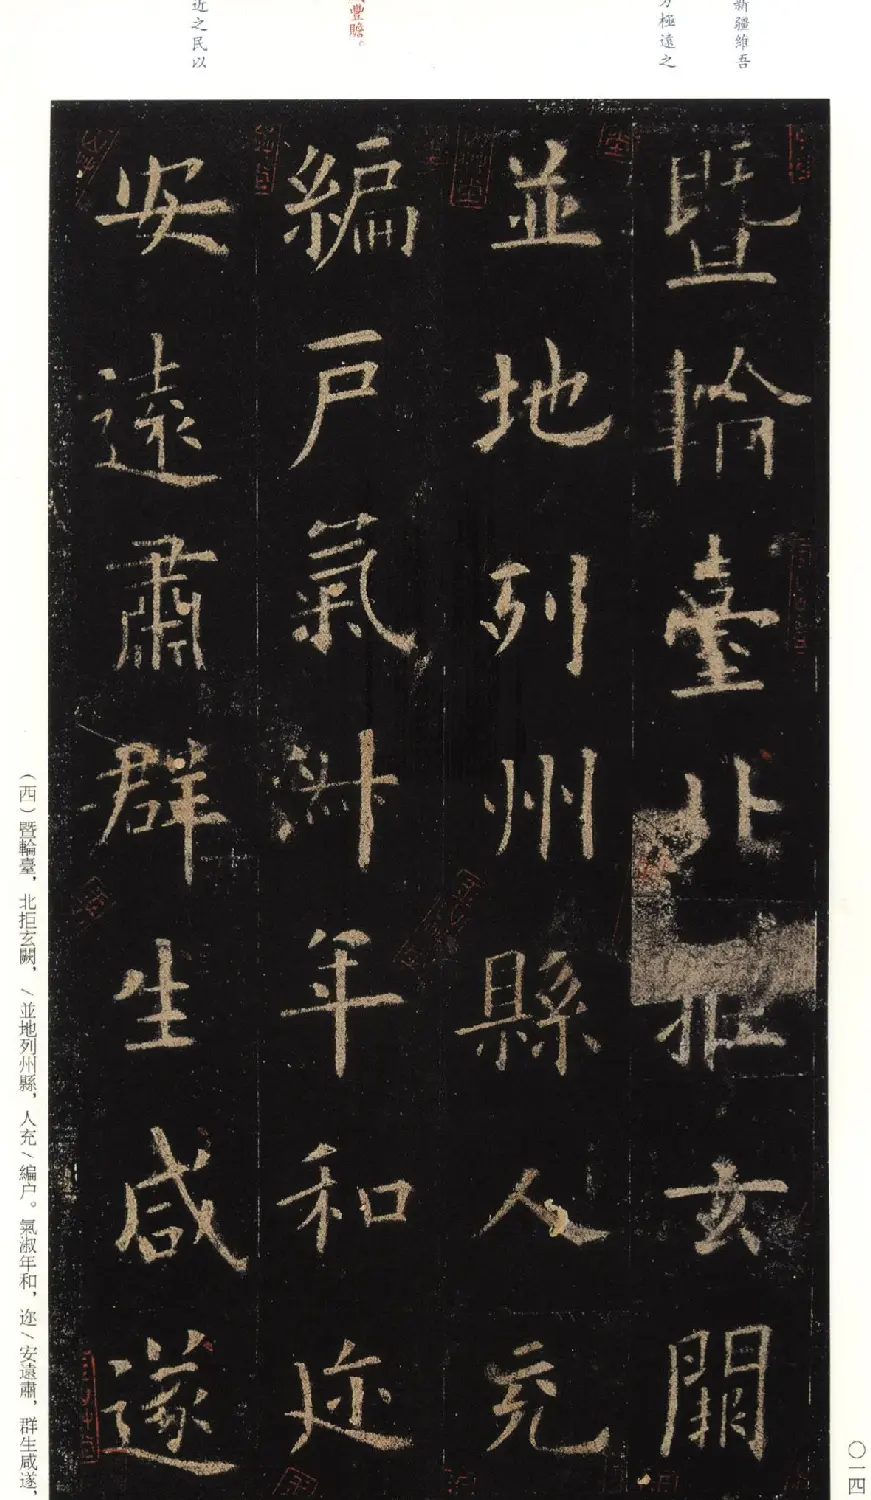 新疆維吾
極遠之
豐贍。
近之民以
暨輪臺北拒玄闕
並地列州縣人充
編戶氣淑年和迩
安遠肅群生咸遂
(西)暨輪臺，北拒玄闕，/並地列州縣，人充/編户。氣淑年和，迩/安遠肅，群生咸遂，
〇一四